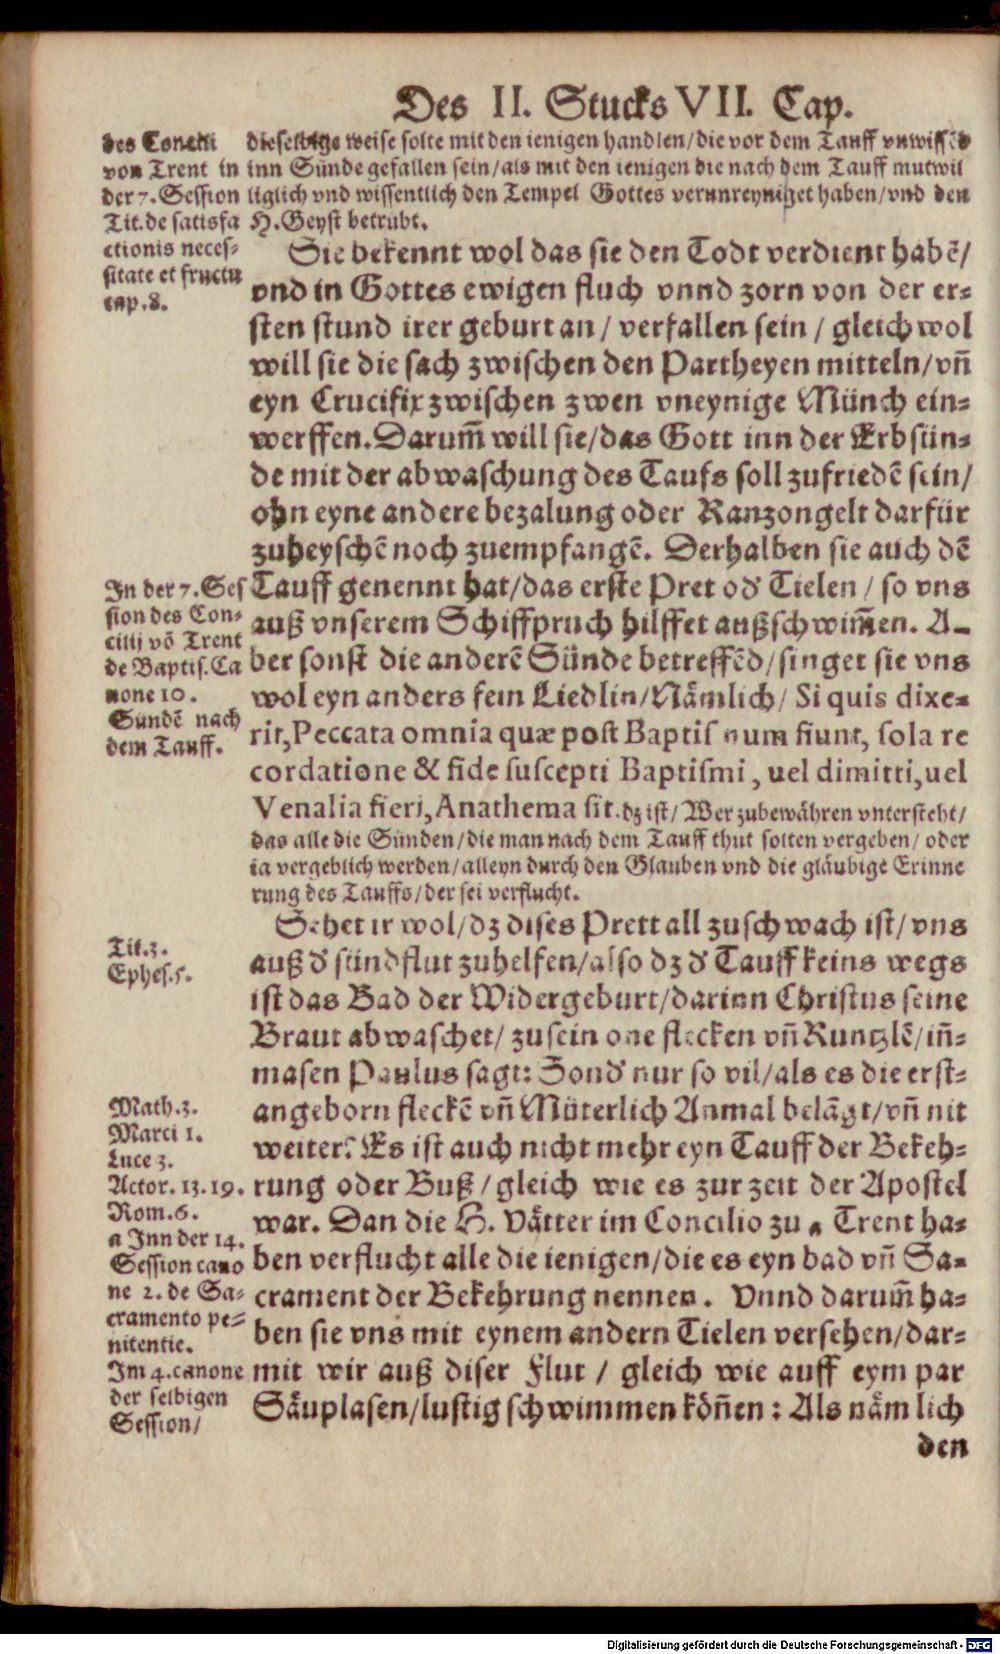 Des II. Stucks VII. Cap.
dieselbige weise solte mit den ienigen handlen/die vor dem Tauff vnwissēd
inn Sünde gefallen sein/als mit den ienigen die nach dem Tauff mutwil
liglich vnd wissentlich den Tempel Gottes verunreyniget haben/vnd den
H. Geyst betrubt.
des Concilii
von Trent in
der 7. Session
Tit. de satisfa
ctionis neces-
sitate et fructu
cap. 8.
Sie bekennt wol das sie den Todt verdient habē/
vnd in Gottes ewigen fluch vnnd zorn von der er-
sten stund irer geburt an / verfallen sein / gleich wol
will sie die sach zwischen den Partheyen mitteln/vñ
eyn Crucifix zwischen zwen vneynige Münch ein-
werffen. Darum̄ will sie/das Gott inn der Erbsün-
de mit der abwaschung des Taufs soll zufriedē sein/
ohn eyne andere bezalung oder Ranzongelt darfür
zuheyschē noch zuempfangē. Derhalben sie auch dē
Tauff genennt hat/das erste Pret od' Tielen / so vns
auß vnserem Schiffpruch hilffet außschwim̄en. A-
ber sonst die anderē Sünde betreffēd/singet sie vns
wol eyn anders fein Liedlin/Nämlich/ Si quis dixe-
rit, Peccata omnia quæ post Baptismum fiunt, sola re
cordatione & fide suscepti Baptismi, uel dimitti, uel
Venalia fieri, Anathema sit. dz ist/ Wer zubewähren vntersteht/
das alle die Sünden/die man nach dem Tauff thut solten vergeben/ oder
ia vergeblich werden/alleyn durch den Glauben vnd die gläubige Erinne
rung des Tauffs/der sei verflucht.
In der 7. Ses
sion des Con-
cilij võ Trent
de Baptis. Ca
none 10.
Sundē nach
dem Tauff.
Sehet ir wol/dz dises Prett all zu schwach ist/ vns
auß d' sündflut zuhelfen/also dz d' Tauff keins wegs
ist das Bad der Widergeburt/darinn Christus seine
Braut abwaschet/ zusein one flecken vñ Runtzlē/iñ-
masen Paulus sagt: Sond' nur so vil/als es die erst-
angeborn fleckē vñ Müterlich Anmal belāgt/vñ nit
weiter? Es ist auch nicht mehr eyn Tauff der Bekeh-
rung oder Buß / gleich wie es zur zeit der Apostel
war. Dan die H. Vätter im Concilio zu a Trent ha-
ben verflucht alle die ienigen/die es eyn bad vñ Sa-
crament der Bekehrung nennen. Vnnd darum̄ ha-
ben sie vns mit eynem andern Tielen versehen/dar-
mit wir auß diser Flut / gleich wie auff eym par
Säuplasen/lustig schwimmen köñen: Als nämlich
den
Tit. 3.
Ephes. 5.
Math. 3.
Marci 1.
Luce 3.
Actor. 13. 19.
Rom. 6.
a Inn der 14.
Session cano
ne 2. de Sa-
cramento pe-
nitentie.
Im 4. canone
der selbigen
Session/
Digitalisierung gefördert durch die Deutsche Forschungsgemeinschaft - DFG